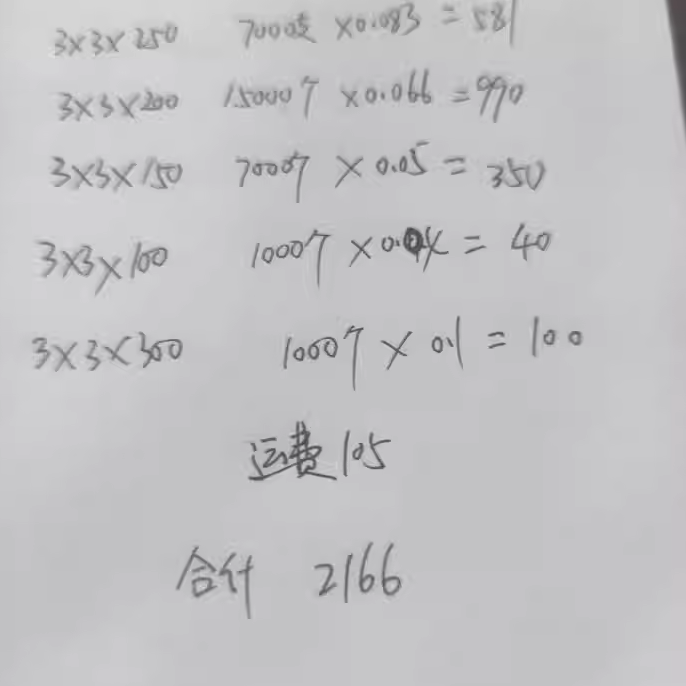 3×3×250 7000支 ×0.083 = 581
3×3×200 15000个 ×0.066 = 990
3×3×150 7000个 × 0.05 = 350
3×3×100 1000个 ×0.04 = 40
3×3×300 1000个 × 0.1 = 100
运费 105
合计 2166